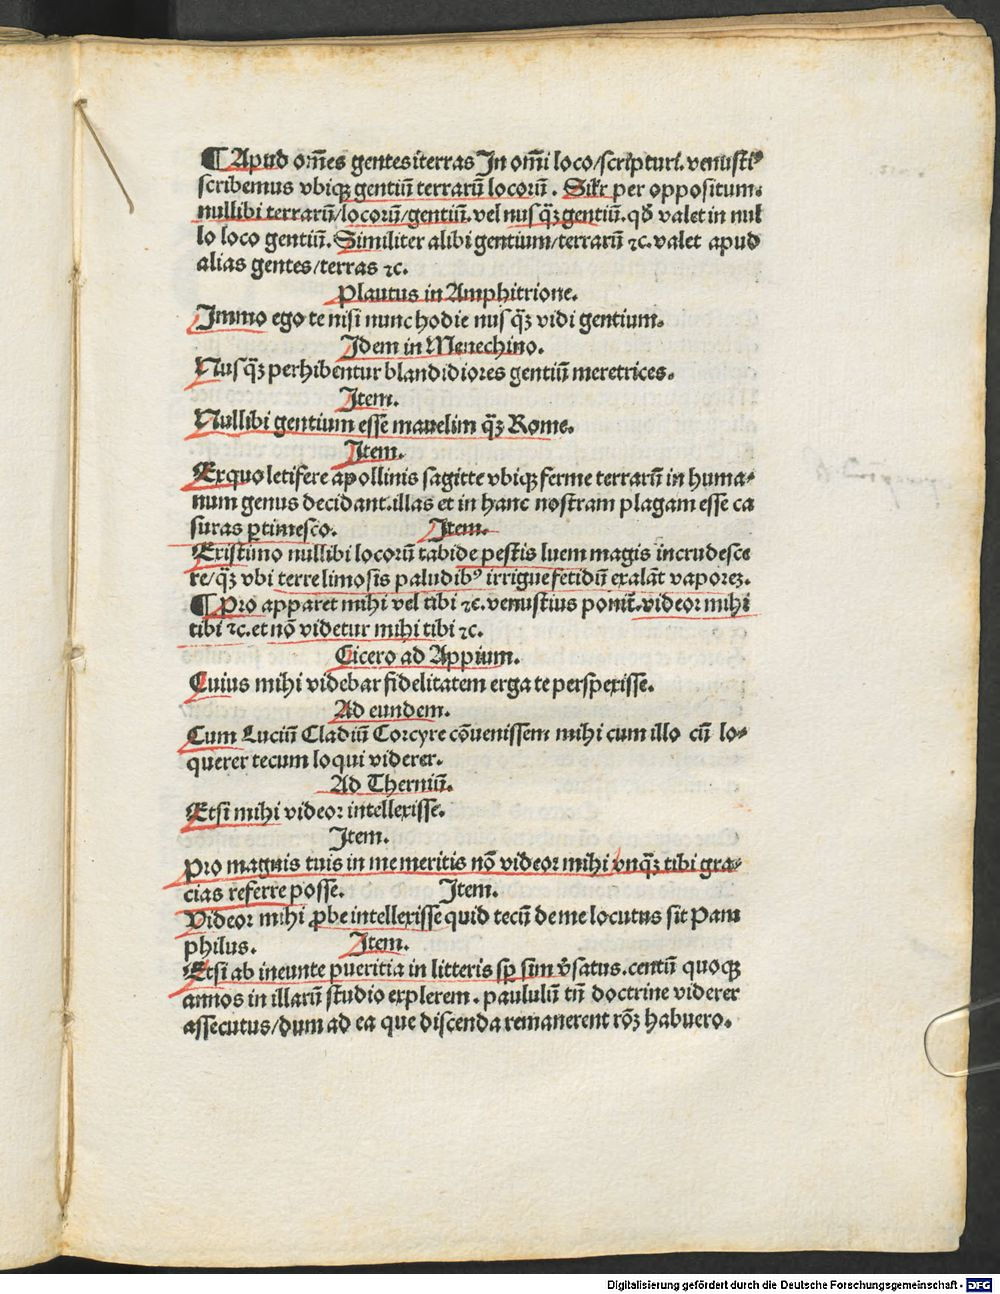 ¶ Apud om̄es gentes iterras In om̄i loco/scripturi. venustiꝰ
scribemus vbiqꝫ gentiū terrarū locorū. Silr̄ per oppositum.
nullibi terrarū/locorū/gentiū. vel nusq̄ꝫ gentiū. qđ valet in nul
lo loco gentiū. Similiter alibi gentium/terrarū ⁊c. valet apud
alias gentes/terras ⁊c.
Plautus in Amphitrione.
Immo ego te nisi nunc hodie nusq̄ꝫ vidi gentium.
Idem in Menechino.
Nusq̄ꝫ perhibentur blandidiores gentiū meretrices.
Item.
Nullibi gentium esse mauelim q̄ꝫ Rome.
Item.
Exquo letifere apollinis sagitte vbiqꝫ ferme terrarū in huma-
num genus decidant. illas et in hanc nostram plagam esse ca
suras ꝑtimesco. Item.
Existimo nullibi locorū tabide pestis luem magis incrudesce
re/q̄ꝫ vbi terre limosis paludibꝰ irrigue fetidū exalāt vaporeꝫ.
¶ Pro apparet mihi vel tibi ⁊c. venustius ponit̄. videor mihi
tibi ⁊c. et nō videtur mihi tibi ⁊c.
Cicero ad Appium.
Cuius mihi videbar fidelitatem erga te perspexisse.
Ad eundem.
Cum Luciū Cladiū Corcyre cōuenissem mihi cum illo cū lo-
querer tecum loqui viderer.
Ad Therniū.
Etsi mihi videor intellexisse.
Item.
Pro magnis tuis in me meritis nō videor mihi vnq̄ꝫ tibi gra-
cias referre posse. Item.
Videor mihi ꝓbe intellexisse quid tecū de me locutus sit Pam
philus. Item.
Etsi ab ineunte pueritia in litteris sꝑ sim v̄satus. centū quoqꝫ
annos in illarū studio explerem. paululū tn̄ doctrine viderer
assecutus/dum ad ea que discenda remanerent rōꝫ habuero.
Digitalisierung gefördert durch die Deutsche Forschungsgemeinschaft - DFG